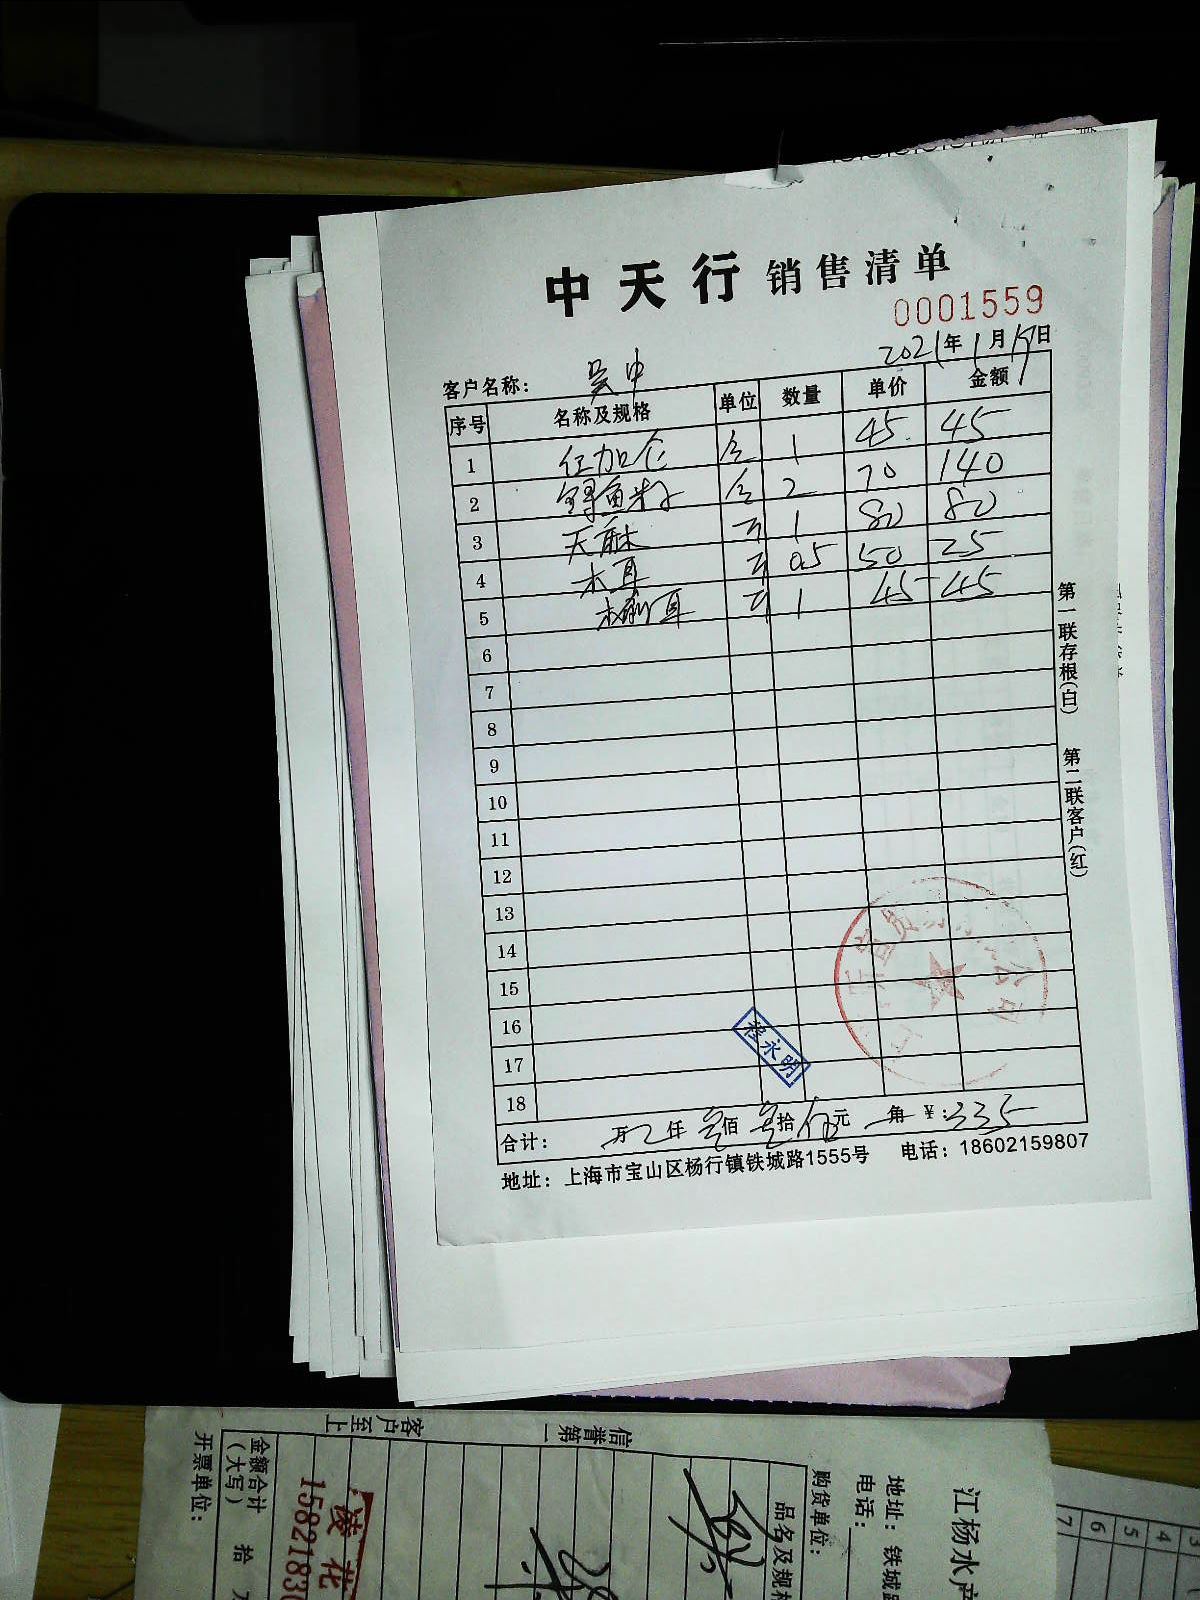 中天行 销售清单
0001559
2021年1月19日
客户名称： 吴中
序号 名称及规格 单位 数量 单价 金额
1 红加仑 仓 1 45 45
2 鲟鱼籽 仓 2 70 140
3 天麻 斤 1 80 80
4 木耳 斤 0.5 50 25
5 耳 斤 1 45 45
6
7
8
9
10
11
12
13
14
15
16
17
18
程永明
公司
合计： 万 仟 叁佰 叁拾 伍元 角 ￥:335
地址：上海市宝山区杨行镇铁城路1555号 电话：18602159807
第一联存根(白) 第二联客户(红)
江杨水产
地址：铁城路
电话：
购货单位：
品名及规格
信誉第一
客户至上
金额合计
(大写) 拾 万
开票单位：
凌花
15821830
3
4
5
6
7